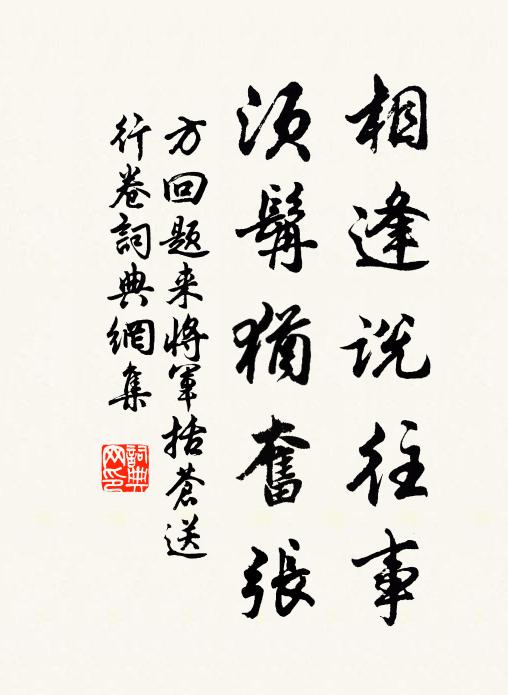 相逢说往事
须髯犹奋张
方回题来将军括苍送
行卷词典网集
词典网印